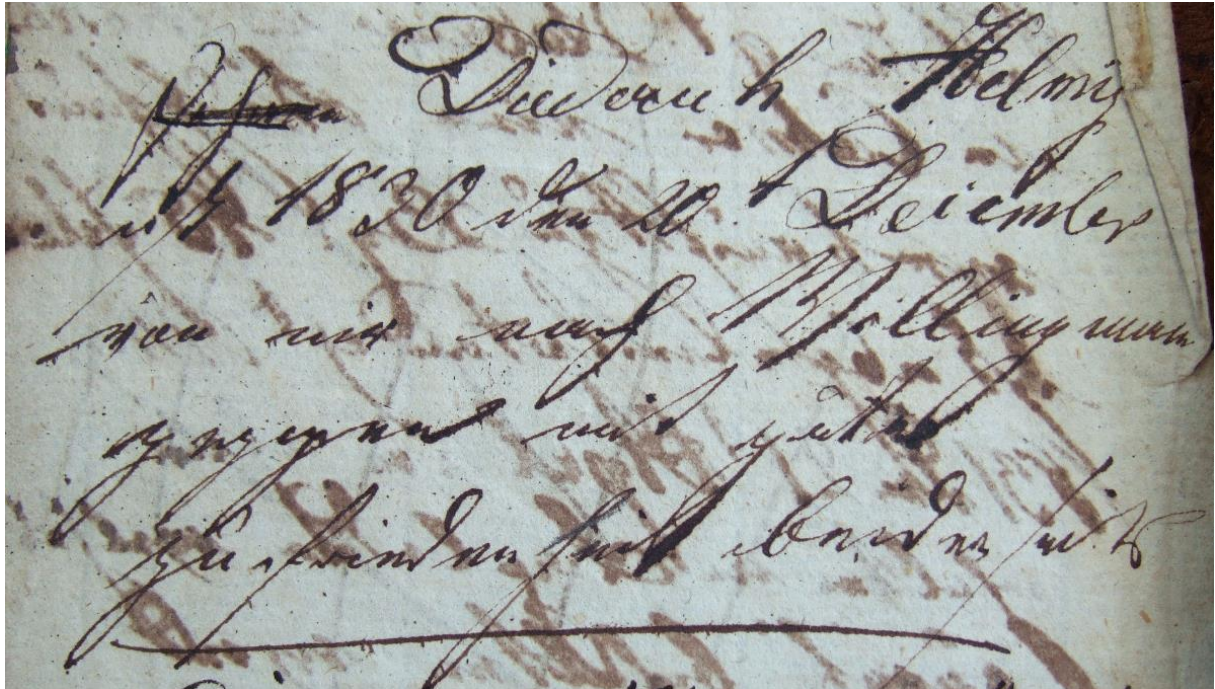 Diederich Helmig
ist 1830 den 20 December
von mir nach
gegangen mit guter
zufriedenheit beiderseits